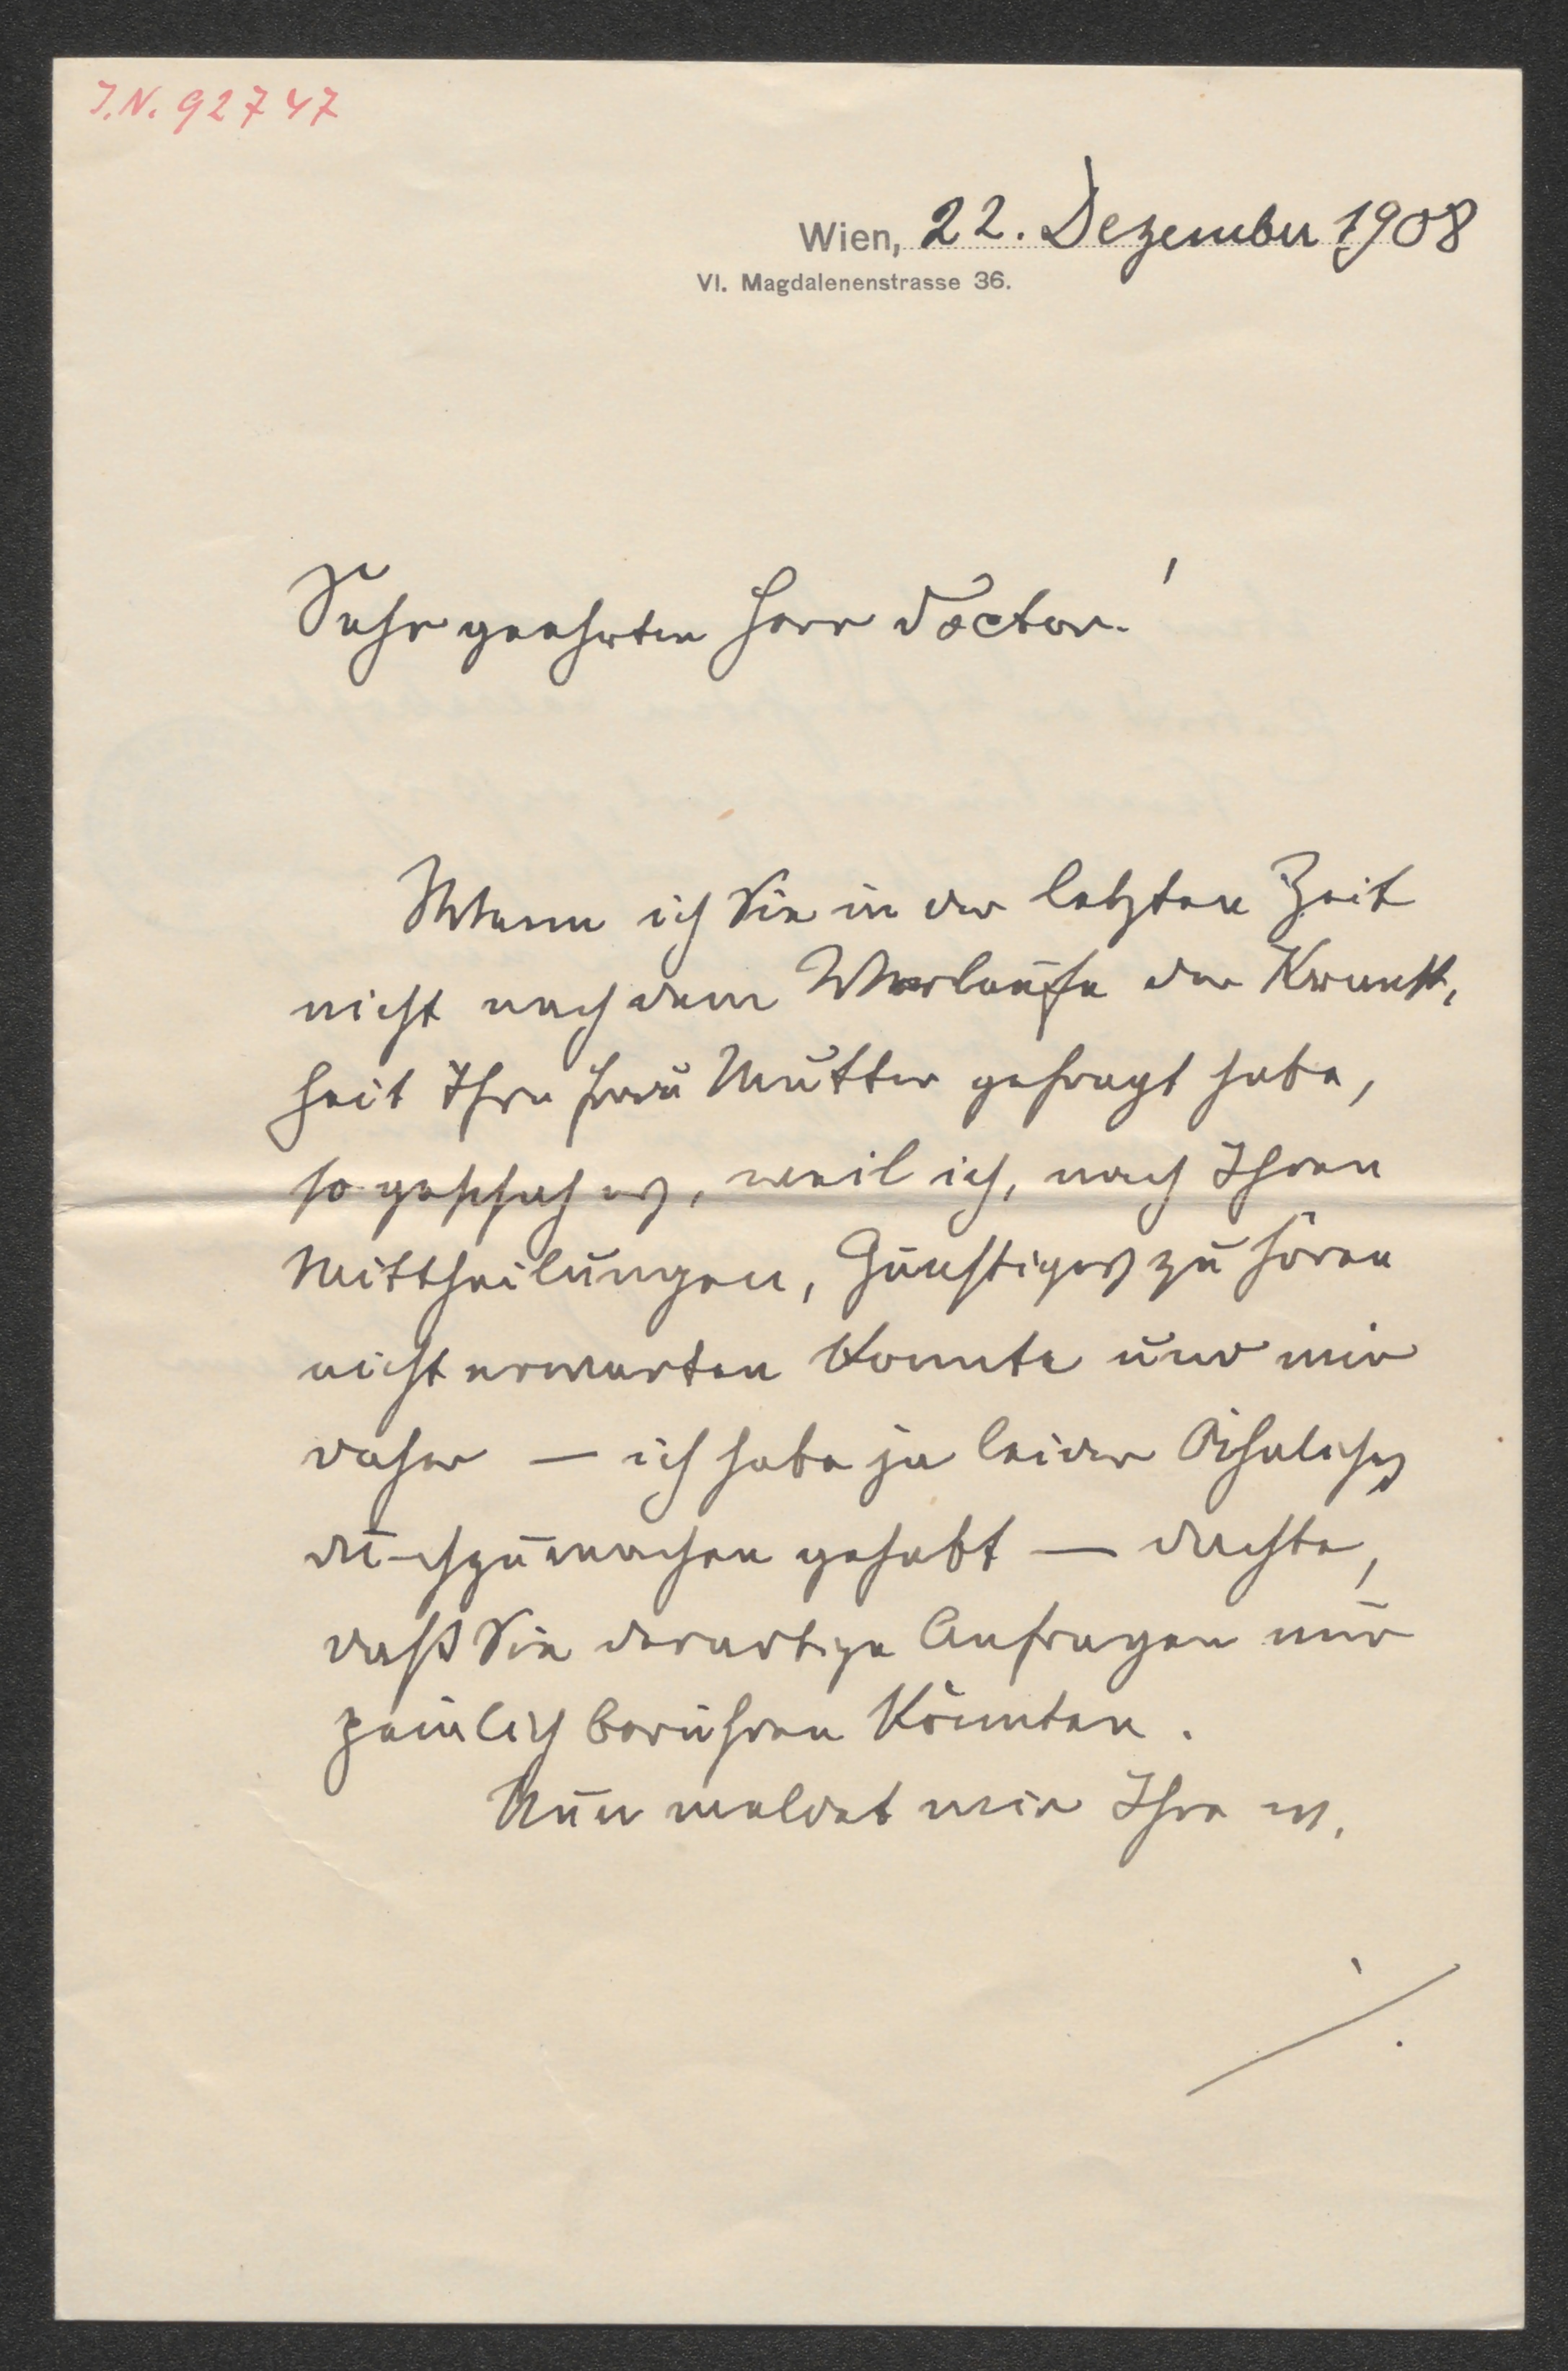 I.N. 92747
Wien, 22. Dezember 1908
VI. Magdalenenstrasse 36.
Sehr geehrter Herr Doctor!
Wenn ich Sie in der letzten Zeit
nicht nach dem Verlaufe der Krank-
heit Ihrer Frau Mutter gefragt habe,
so geschah es, weil ich, nach Ihren
Mittheilungen, Günstiges zu hören
nicht erwarten konnte und mir
daher — ich habe ja leider Ähnliches
durchzumachen gehabt — dachte,
daß Sie derartige Anfragen nur
peinlich berühren könnten.
Nun meldet mir Ihre